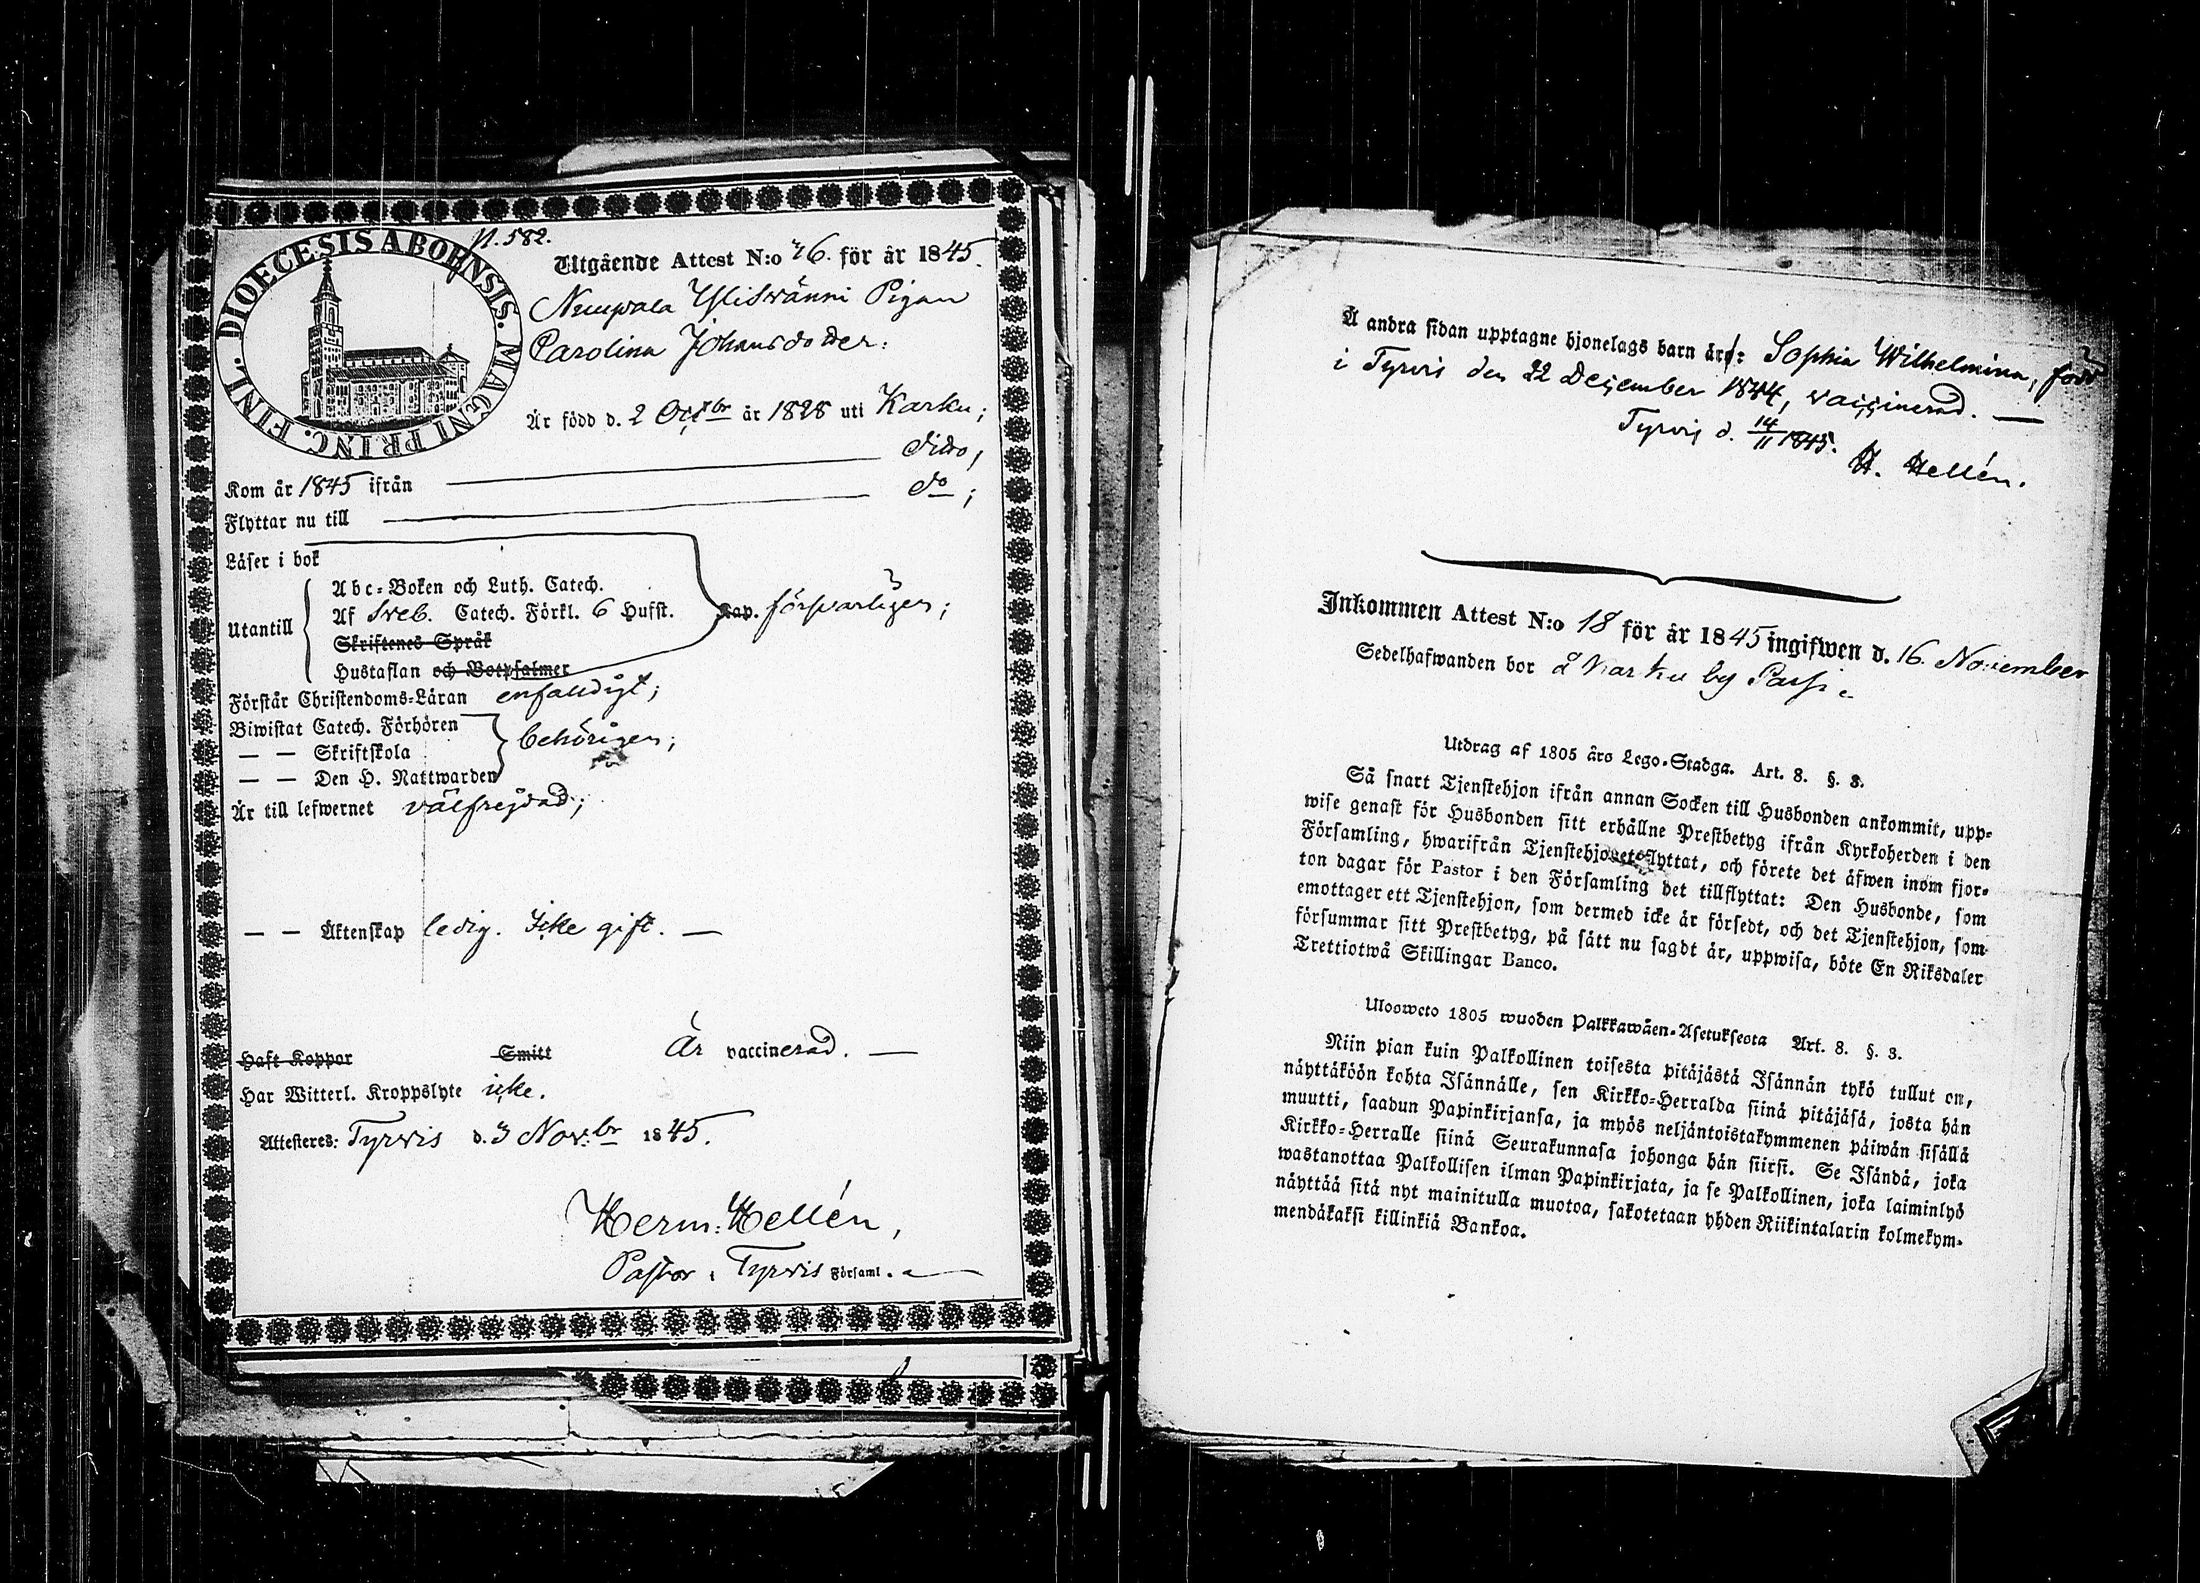 DIOECESIS ABOENSIS. MAGNI PRINC. FINL.
p. 582.
Utgående Attest N:o 76. för år 1845.
Yliswänni Pigan
Carolina Johansdotter.
Är född d. 2 Octbr år 1828 uti Karku;
Kom år 1845 ifrån dito,
Flyttar nu till do;
Läser i bok
Abc-Boken och Luth. Catech.
Utantill Af Sveb. Catech. Förkl. 6 Hufst. kap. försvarligen;
Skriftenes Språk
Hustaflan och Botpsalmer
Förstår Christendoms-Läran enfaldigt;
Biwistat Catech. Förhören
— — Skriftskola behörigen;
— — Den H. Nattwarden
Är till lefwernet välfrejdad;
— — Äktenskap ledig. Icke gift. —
Haft Koppor Smitt Är vaccinerad. —
Har Witterl. Kroppslyte icke.
Attesteres: Tyrvis d. 3 Nov:br 1845.
Herm: Hellén,
Pastor i Tyrvis Församl.
Å andra sidan upptagne hjonelags barn äro: Sophia Wilhelmina, född
i Tyrvis den 22 December 1844, vaccinerad. —
Tyrvis d. 14/11 1845.
H. Hellén.
Inkommen Attest N:o 18 för år 1845 ingifwen d. 16. November
Sedelhafwanden bor å Karku by
Utdrag af 1805 års Lego-Stadga. Art. 8. §. 3.
Så snart Tjenstehjon ifrån annan Socken till Husbonden ankommit, upp-
wise genast för Husbonden sitt erhållne Prestbetyg ifrån Kyrkoherden i den
Församling, hwarifrån Tjenstehjonet flyttat, och förete det äfwen inom fjor-
ton dagar för Pastor i den Församling det tillflyttat: Den Husbonde, som
emottager ett Tjenstehjon, som dermed icke är försedt, och det Tjenstehjon, som
försummar sitt Prestbetyg, på sätt nu sagdt är, uppwisa, böte En Riksdaler
Trettiotwå Skillingar Banco.
Uloosweto 1805 wuoden Palkkawäen-Asetuksesta Art. 8. §. 3.
Niin pian kuin Palkollinen toisesta pitäjästä Isännän tykö tullut on,
näyttäköön kohta Isännälle, sen Kirkko-Herralda siinä pitäjäsä, josta hän
muutti, saadun Papinkirjansa, ja myös neljäntoistakymmenen päiwän sisällä
Kirkko-Herralle siinä Seurakunnasa johonga hän siirsi. Se Isändä, joka
wastanottaa Palkollisen ilman Papinkirjata, ja se Palkollinen, joka laiminlyö
näyttää sitä nyt mainitulla muotoa, sakotetaan yhden Riikintalarin kolmekym-
mendäkaksi killinkiä Bankoa.